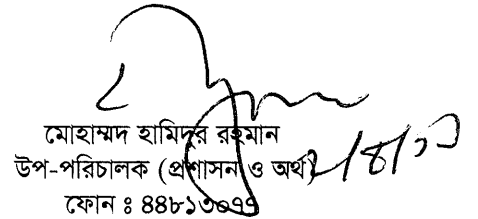 মোহাম্মদ হামিদুর রহমান
উপ-পরিচালক (প্রশাসন ও অর্থ)
ফোন ঃ ৪৪৮১৩০৭৭